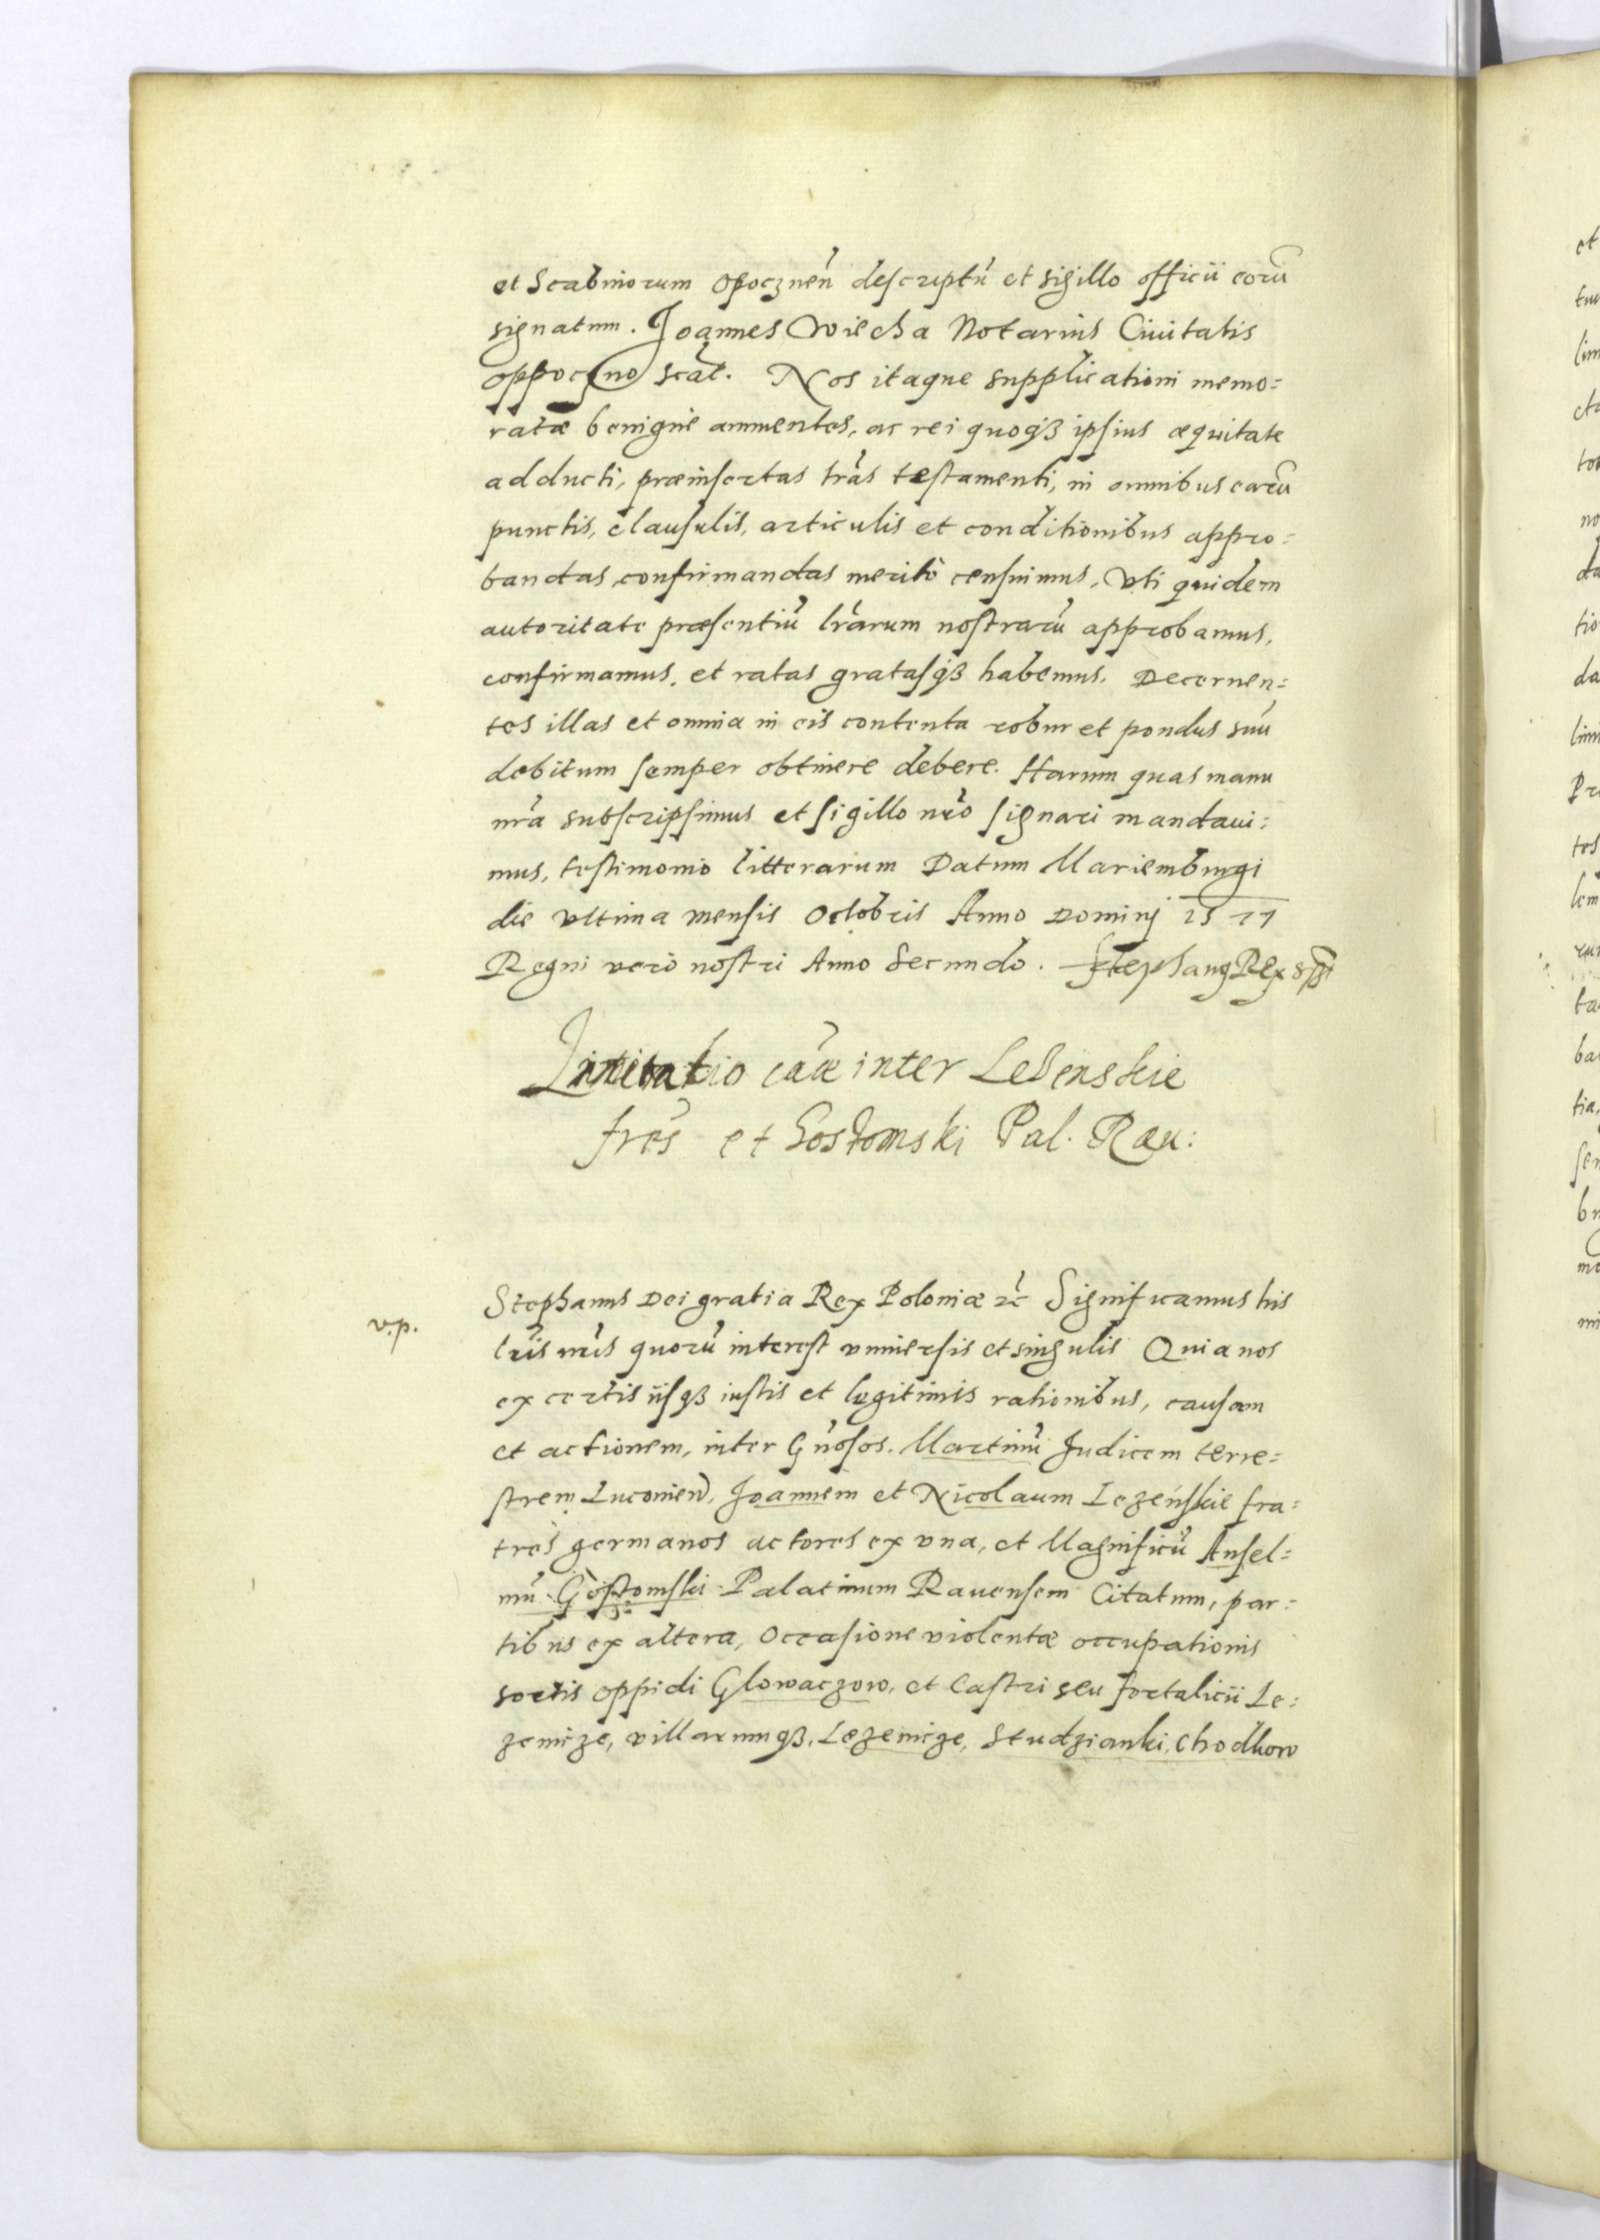 et Scabinorum Opocznen̄ descriptū et sigillo officii eorū
signatum. Joannes Wiecha Notarius Ciuitatis
Oppoczno scat. Nos itaque supplicationi memo:
ratæ benigne annuentes, ac rei quoqꝫ ipsius æquitate
adducti, præinsertas lr̄as testamenti, in omnibus earū
punctis, clausulis, articulis et conditionibus appro:
bandas confirmandas meritò censuimus, Vti quidem
autoritate præsentiū lr̄arum nostrarū approbamus,
confirmamus, et ratas gratasqꝫ habemus. Decernen:
tes illas et omnia in eis contenta robur et pondus suū
debitum semper obtinere debere. Harum quas manu
nr̄a subscripsimus et sigillo nr̄o signari mandaui:
mus, testimonio litterarum Datum Mariemburgi
die vltima mensis Octobris Anno Dominj 1577
Regni verò nostri Anno Secundo. Stephanꝰ Rex sst
cāæ inter Lesenskie
fres̄ et Gostomski Pal. Rau:
v.p.
Stephanus Dei gratia Rex Poloniæ ꝛc̄ Significamus his
lr̄is nr̄is quorū interest vniuersis et singulis Quia nos
ex certis iisqꝫ iustis et legitimis rationibus, causam
et actionem, inter Gn̄osos. Martinū Judicem terre:
strem Lucouien̄, Joannem et Nicolaum Lezeńskie fra:
tres germanos actores ex vna, et Magnificū Ansel:
mū Gostomski Palatinum Rauensem Citatum, par:
tibus ex altera, Occasione violentæ occupationis
sortis oppidi Glowaczow, et Castri seu fortalicii Le:
zenicze, villarumqꝫ, Lezenicze, Studzianki, Chodkow